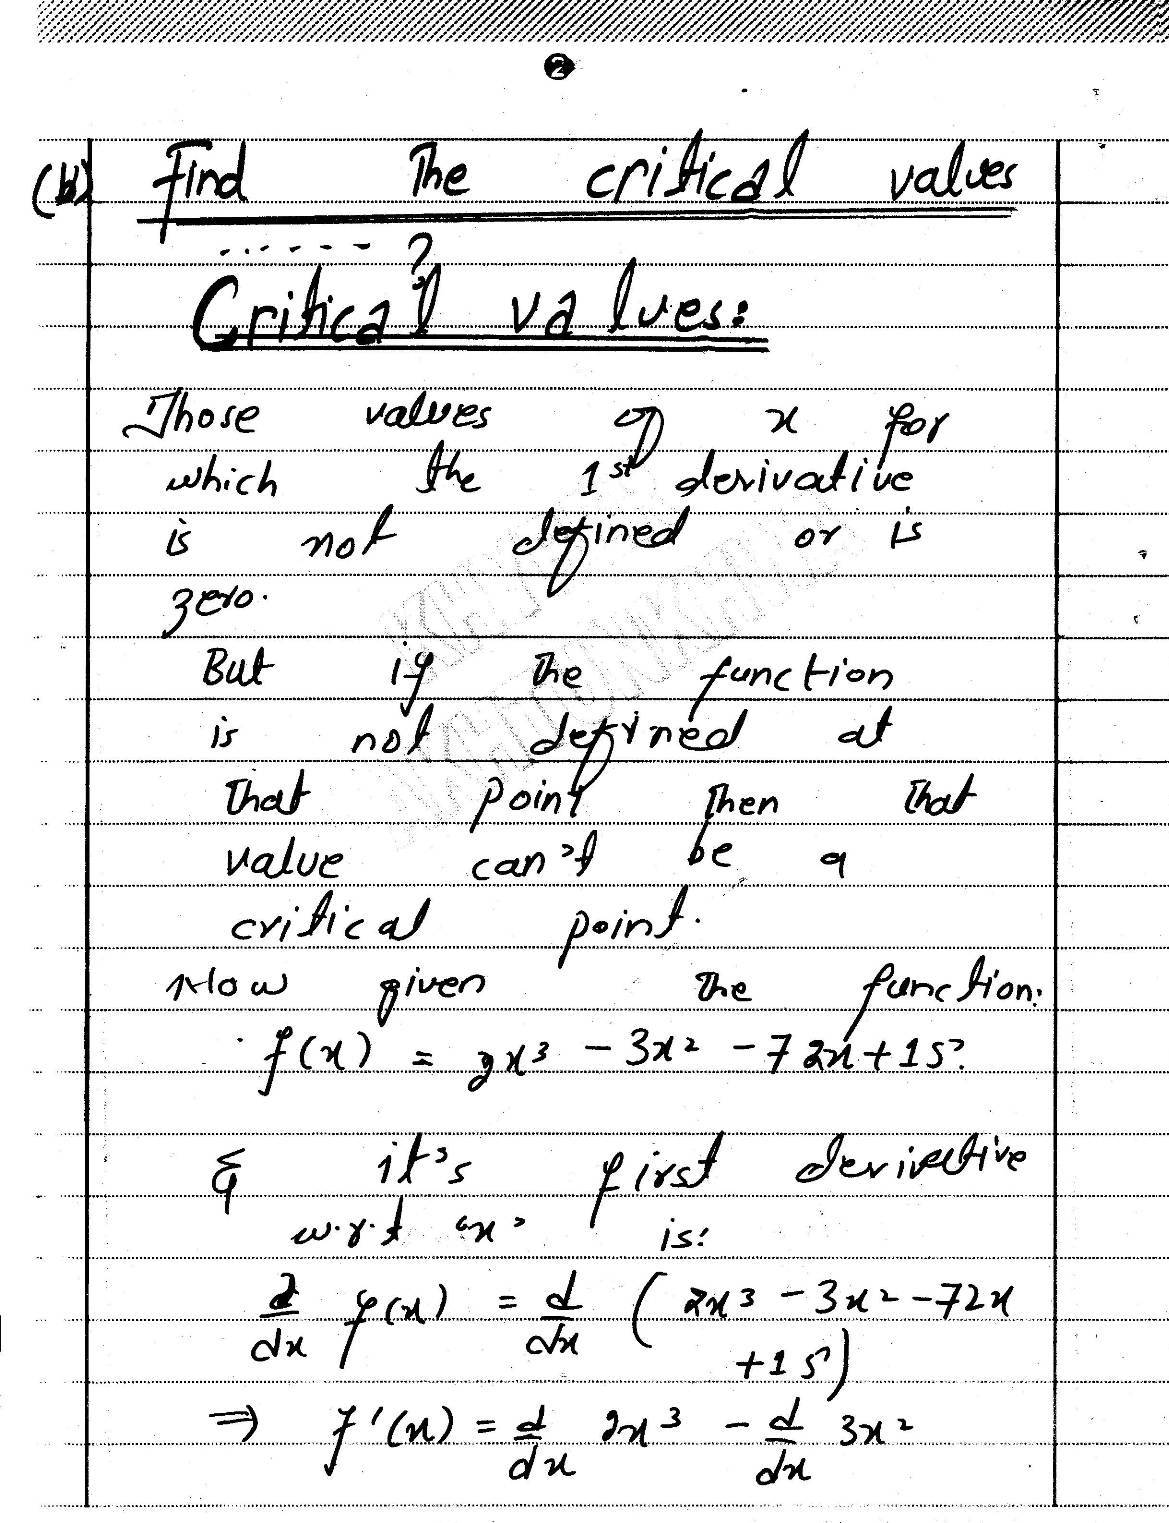 2
(b) Find The critical values
. . . . - - - ?
Critical values:
Those values of x for
which the 1st derivative
is not defined or is
zero.
But if the function
is not defined at
That point Then That
value can't be a
critical point.
Now given The function.
f(x) = 2x³ - 3x² - 72x + 15.
& it's first derivative
w.r.t "x" is:
d/dx f(x) = d/dx (2x³ - 3x² - 72x
+15)
⇒ f'(x) = d/dx 2x³ - d/dx 3x²